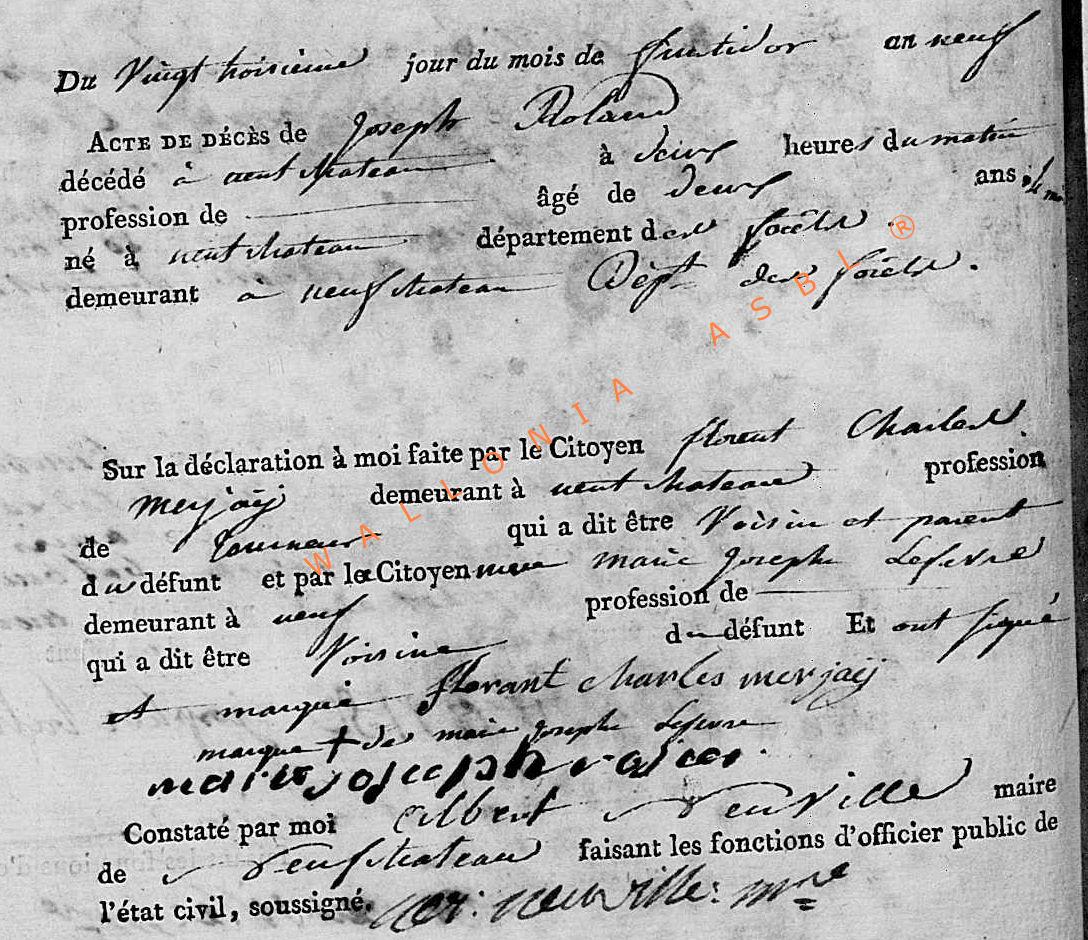 Du Vingt troisieme jour du mois de fructidor an neuf
ACTE DE DÉCÈS de Joseph Roland
décédé à neufchateau à deux heures du matin
profession de âgé de deux ans
né à neufchateau département des forêts
demeurant à neufchateau Dépt des forêts.
Sur la déclaration à moi faite par le Citoyen florent Charles
merjaÿ demeurant à neufchateau profession
de qui a dit être Voisin et parent
du défunt et par le Citoyenne marie Josephe Lefevre
demeurant à neuf profession de
qui a dit être Voisine du défunt Et ont signé
et marqué florant charles merjaÿ
marque + de marie Josephe Lefevre
marie joseph
Constaté par moi Albert Neuville maire
de Neufchateau faisant les fonctions d'officier public de
l'état civil, soussigné. neuville: mre
WALLONIA ASBL ®